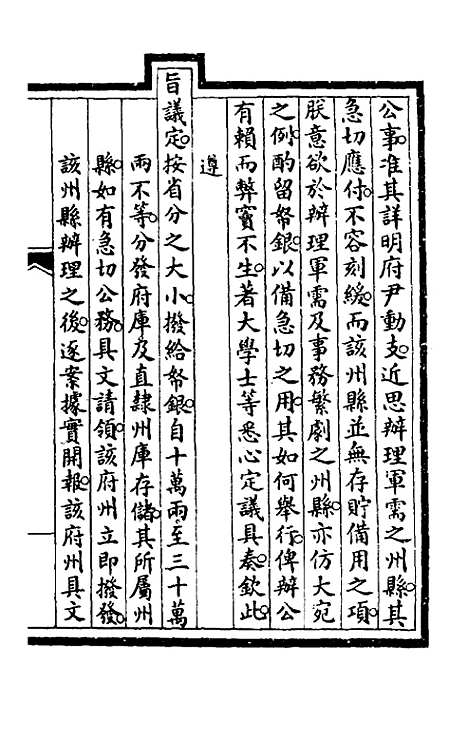 公事准其詳明府尹動支近思辦理軍需之州縣其
急切應付不容刻緩而該州縣並無存貯備用之項
朕意欲於辦理軍需及事務繁劇之州縣亦仿大宛
之例酌留帑銀以備急切之用其如何舉行俾辦公
有賴而弊竇不生著大學士等悉心定議具奏欽此
遵
旨議定按省分之大小撥給帑銀自十萬兩至三十萬
兩不等分發府庫及直隸州庫存儲其所屬州
縣如有急切公務具文請領該府州立即撥發
該州縣辦理之後逐案據實開報該府州具文